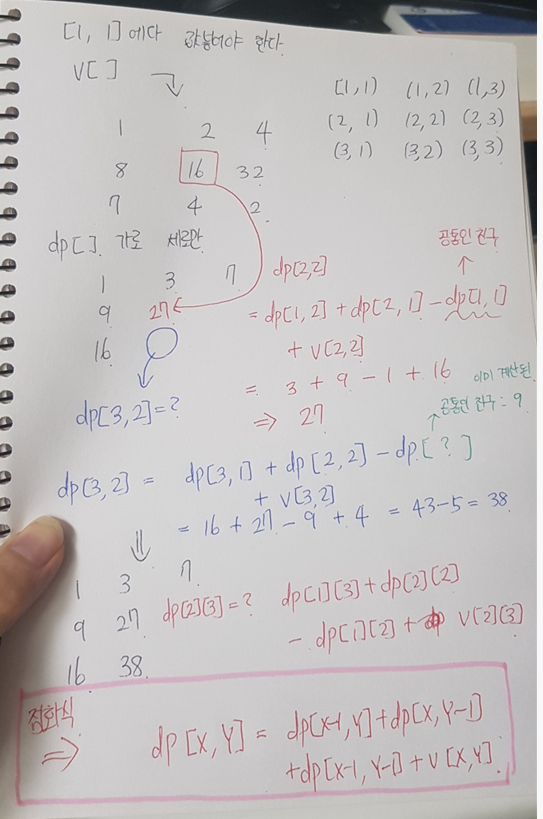 [1, 1]에다 값넣어야 한다.
V[ ]
[1,1) (1,2) (1,3)
(2, 1) (2,2) (2,3)
(3,1) (3,2) (3,3)
1 2 4
8 16 32
7 4 2
dp[ ] 가로 세로만
공통인 전구
1 3 7
9 27
16
dp[2,2]
= dp[1,2] + dp[2,1] - dp[1,1]
+ V[2,2]
= 3 + 9 - 1 + 16
⇒ 27
이미 계산된
공통인 전구 : 9
dp[3,2] = ?
dp[3,2] = dp[3,1] + dp[2,2] - dp[ ? ]
+ V[3,2]
= 16 + 27 - 9 + 4 = 43-5 = 38
1 3 7
9 27
16 38
dp[2][3] = ? dp[1][3] + dp[2][2]
- dp[1][2] + V[2][3]
점화식
⇒ dp[X,Y] = dp[X-1,Y] + dp[X,Y-1]
+dp[X-1,Y-1] + V[X,Y]